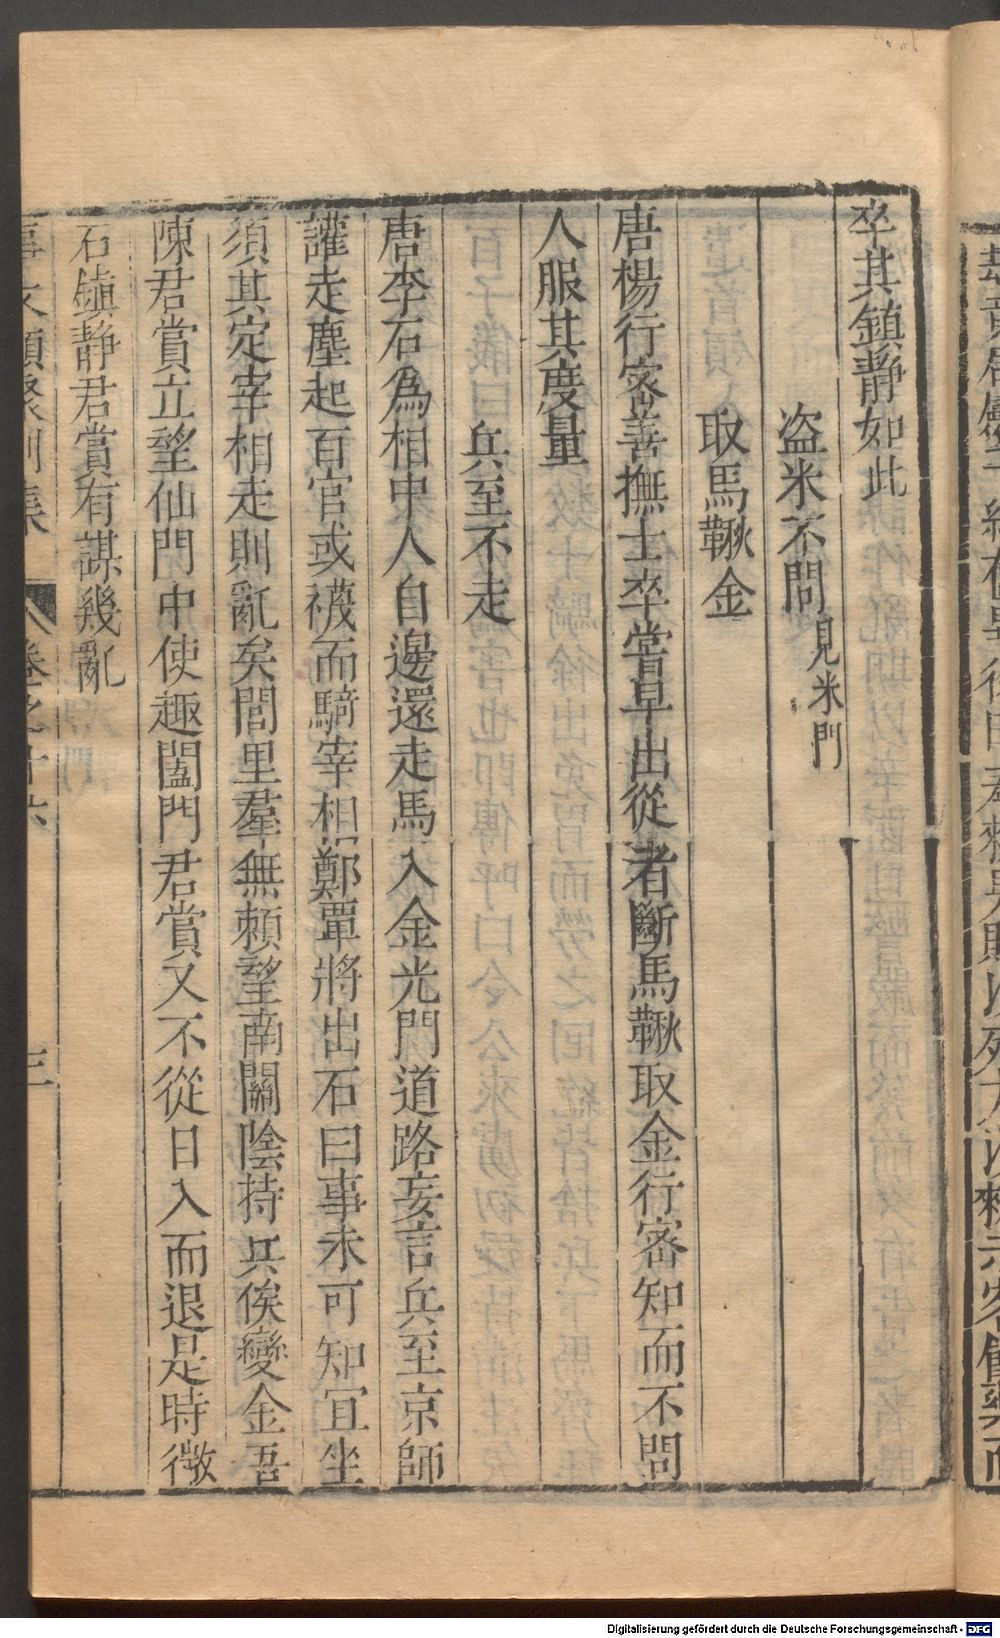 卒其鎮靜如此
盗米不問見米門
取馬鞦金
唐楊行密善撫士卒嘗早出從者斷馬鞦取金行密知而不問
人服其度量
兵至不走
唐李石為相中人自邊還走馬入金光門道路妄言兵至京師
讙走塵起百官或襪而騎宰相鄭覃將出石曰事未可知宜坐
須其定宰相走則亂矣閭里羣無賴望南闕陰持兵俟變金吾
陳君賞立望仙門中使趣闔門君賞又不從日入而退是時微
石鎮静君賞有謀幾亂
事文類聚別集 卷之十六 三
Digitalisierung gefördert durch die Deutsche Forschungsgemeinschaft - DFG